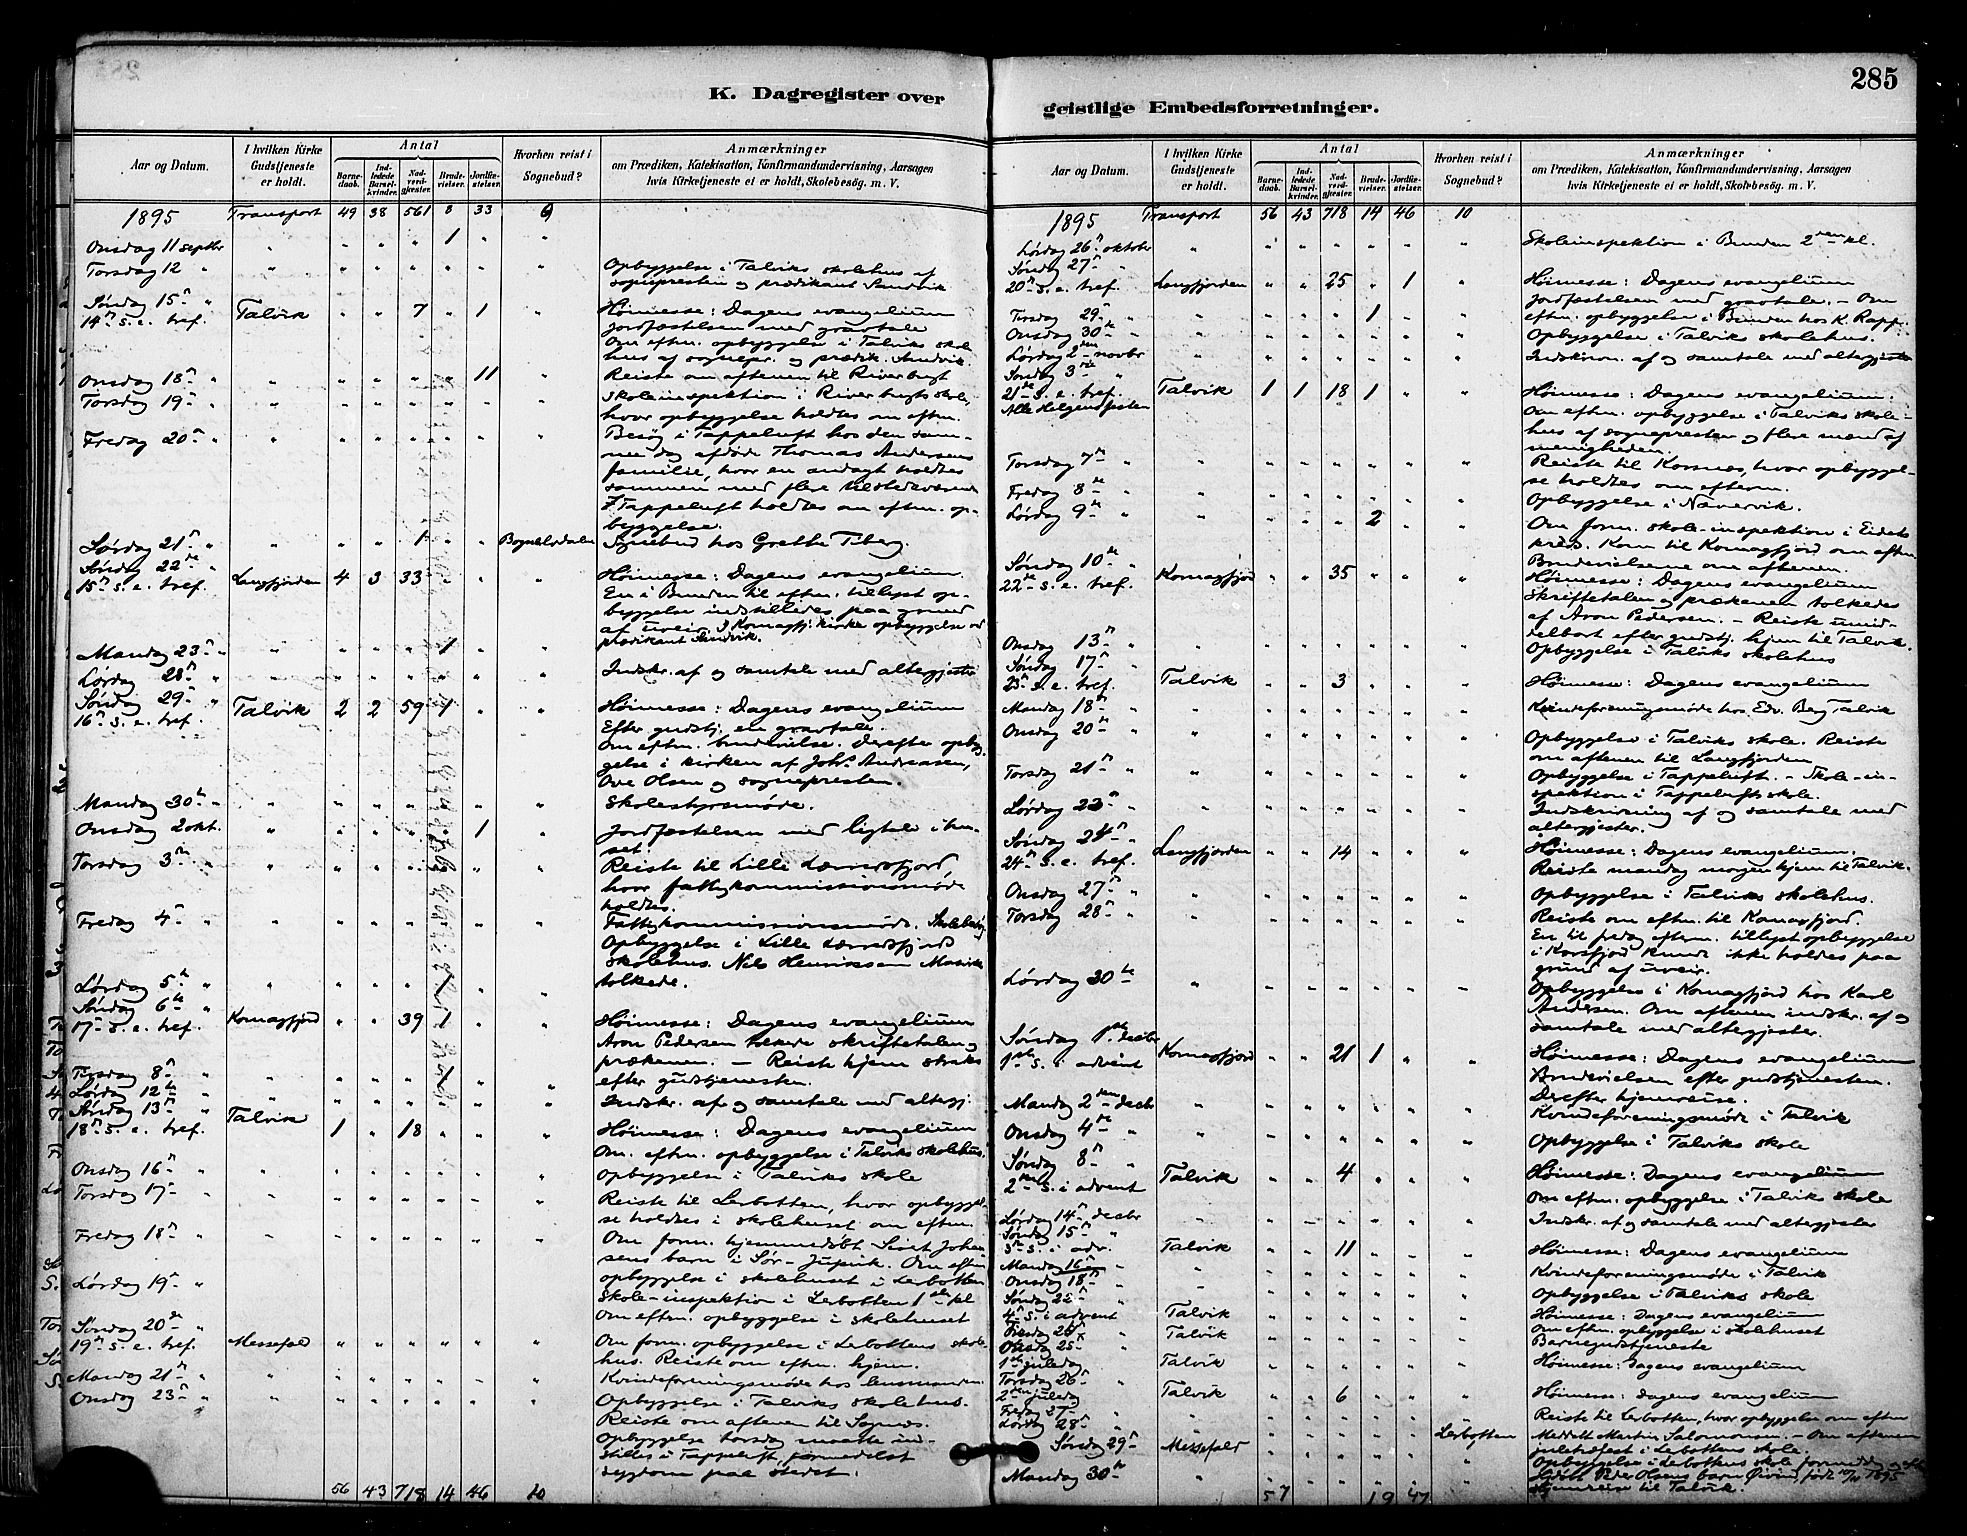 285
K. Dagregister over
geistlige Embedsforretninger.
Aar og Datum.
I hvilken Kirke Gudstjeneste er holdt.
Antal
Barnedaab.
Indledede Barselkvinder.
Nadverdgjester.
Brudevielser.
Jordfæstelser.
Hvorhen reist i Sognebud?
Anmærkninger
om Prædiken, Katekisation, Konfirmandundervisning, Aarsagen
hvis Kirketjeneste ei er holdt, Skolebesøg. m. V.
1895 Transport 49 38 561 8 33 9
Onsdag 11 septbr " " " " 1 " "
Torsdag 12 " " " " " " " " Opbyggelse i Talviks skolehus af
sognepresten og prædikant Sandvik
Søndag 15n "
14n s. e. tref. Talvik " " 7 " 1 " Høimesse: Dagens evangelium
Jordfæstelsen med gravtale
Om eftm. opbyggelse i Talviks skole
hus af sognepr. og prædik. Sandvik.
Onsdag 18n " " " " " " 11 " Reiste om aftenen til Riverbugt
Torsdag 19n " " " " " " " " Skoleinspektion i Riverbugts skole,
hvor opbyggelse holdtes om eftm.
Fredag 20n " " " " " " " " Besøg i Tappeluft hos den sam-
me dag afdøde Thomas Andersens
familie, hvor en andagt holdtes
sammen med flere tilstedeværende
I Tappeluft holdtes om eftm. op-
byggelse.
Lørdag 21n " " " " 1 " " Bognelvdalen Sognebud hos Grethe Tiberg.
Søndag 22de "
15n s. e. tref. Langfjorden 4 3 33 " " " Høimesse: Dagens evangelium.
En i Bunden til eftm. tillyst op-
byggelse indstilledes paa grund
af uveir. I Komagfj. kirke opbyggelse ved
prædikant Sandvik.
Mandag 23n " " " " " 1 " "
Lørdag 28n " " " " " " " " Indskr. af og samtale med altergjester
Søndag 29n "
16n s. e. tref. Talvik 2 2 59 1 " " Høimesse: Dagens evangelium
Efter gudstj. en gravtale.
Om eftm. brudevielse. Derefter opbyg-
gelse i kirken af Johs Andreasen,
Ove Olsen og sognepresten.
Mandag 30te " " " " " " " " Skolestyrsmøde.
Onsdag 2 okt. " " " " " 1 " Jordfæstelsen med ligtale i hu-
set.
Torsdag 3die " " " " " " " " Reiste til Lille Lærredsfjord,
hvor fattigkommissionsmøde
holdtes.
Fredag 4n " " " " " " " " Fattigkommissionsmøde. Skolebesøg.
Opbyggelse i Lille Lærredsfjords
skolehus. Nils Henriksen
tolkede.
Lørdag 5te " " " " " " " "
Søndag 6te "
17n s. e. tref. Komagfjord " " 39 1 " " Høimesse: Dagens evangelium
Aron Pedersen tolkede skriftetalen og
prækenen. — Reiste hjem straks
efter gudstjenesten.
Tirsdag 8n " " " " " " " "
Lørdag 12te " " " " " " " " Indskr. af og samtale med altergj.
Søndag 13n "
18n s. e. tref. Talvik 1 " 18 " " " Høimesse: Dagens evangelium
Om. eftm. opbyggelse i Talviks skolehus.
Onsdag 16n " " " " " " " " Opbyggelse i Talviks skole
Torsdag 17n " " " " " " " " Reiste til Lerbotten, hvor opbyggel-
se holdtes i skolehuset om eftm.
Fredag 18n " " " " " " " " Om form. hjemmedøbt Johan-
sens barn i Sør- Om eftm.
opbyggelse i skolehuset i Lerbotten
Lørdag 19n " Skole-inspektion i Lerbotten 1ste kl
Om eftm. opbyggelse i skolehuset
Søndag 20de "
19n s. e. tref. Messefald " " " " " " Om form. opbyggelse i Lerbottens skole-
hus. Reiste om eftm. hjem.
Mandag 21n " " " " " " " " Kvindeforeningsmøde hos lensmanden.
Onsdag 23n " " " " " " " " Opbyggelse i Talviks skolehus.
Reiste om aftenen til
Opbyggelse torsdag maatte ind-
stilles i Tappeluft, formedelst
sygdom paa stedet.
56 43 718 14 46 10
1895 Transport 56 43 718 14 46 10
Lørdag 26n oktober " " " " " " " Skoleinspektion i Bunden 2den kl.
Søndag 27n "
20n s. e. tref. Langfjorden " " 25 " 1 " Høimesse: Dagens evangelium
Jordfæstelsen med gravtale. — Om
Tirsdag 29n " " " " " 1 " " eftm. opbyggelse i Bunden hos K. Rapp.
Onsdag 30te " " " " " " " " Opbyggelse i Talviks skolehus.
Lørdag 2den novbr " " " " " " " Indskrivn. af og samtale med altergjester
Søndag 3die "
21de s. e. tref. Talvik 1 1 18 1 " " Høimesse: Dagens evangelium.
Alle Helgensfesten Om eftm. opbyggelse i Talviks skole-
hus af sognepresten og flere mænd af
menigheden.
Torsdag 7de " " " " " " " " Reiste til Korsnes, hvor opbyggel-
se holdtes om efterm.
Fredag 8de " " " " " " " " Opbyggelse i Nævervik.
Lørdag 9de " " " " " 2 " " Om form. skole-inspektion i Eidets
kreds. Kom til Komagfjord om eftm.
Brudevielserne om aftenen.
Søndag 10de "
22de s. e. tref. Komagfjord " " 35 " " " Høimesse: Dagens evangelium
Skriftetalen og prækenen tolkedes
af Aron Pedersen. — Reiste umid-
delbart efter gudstj. hjem til Talvik.
Onsdag 13n " " " " " " " " Opbyggelse i Talviks skolehus
Søndag 17n "
23n s. e. tref. Talvik " " 3 " " " Høimesse: Dagens evangelium
Mandag 18n " " " " " " " " Kvindeforeningsmøde hos Edv. Berg Talvik
Onsdag 20de " " " " " " " " Opbyggelse i Talviks skole. Reiste
om aftenen til Langfjorden
Torsdag 21n " " " " " " " " Opbyggelse i Tappeluft. — Skole-in-
spektion i Tappelufts skole.
Lørdag 23 " " " " " " " " Indskrivning af og samtale med
altergjester.
Søndag 24n "
24n s. e. tref. Langfjorden " " 14 " " " Høimesse: Dagens evangelium.
Reiste mandag morgen hjem til Talvik.
Onsdag 27n " " " " " " " " Opbyggelse i Talviks skolehus.
Torsdag 28n " " " " " " " " Reiste om eftm. til Komagfjord.
En til fredag efterm. tillyst opbyggelse
i Korsfjord kunde ikke holdes paa
grund af uveir.
Lørdag 30te " " " " " " " Opbyggelse i Komagfjord hos Karl
Andersen. Om aftenen indskr. af og
samtale med altergjester.
Søndag 1ste decbr
1ste s. i advent Komagfjord " " 21 1 " " Høimesse: Dagens evangelium
Brudevielsen efter gudstjenesten.
Derefter hjemreise.
Mandag 2den decbr " " " " " " " Kvindeforeningsmøde i Talvik
Onsdag 4de " " " " " " " " Opbyggelse i Talviks skole
Søndag 8n "
2den s. i advent Talvik " " 4 " " " Høimesse: Dagens evangelium
Om eftm. opbyggelse i Talviks skole
Lørdag 14n decbr " " " " " " " Indskr. af og samtale med altergjester
Søndag 15n "
3n s. i adv. Talvik " " 11 " " " Høimesse: Dagens evangelium
Mandag 16n " " " " " " " " Kvindeforeningsmøde i Talvik
Onsdag 18n " " " " " " " " Opbyggelse i Talviks skole
Søndag 22 "
4n s. i advent Talvik " " " " " " Høimesse: Dagens evangelium
Om eftm. opbyggelse i skolehuset
Tirsdag 24n " Talvik " " " " " " Barnegudstjeneste
Onsdag 25n "
1ste juledag Talvik " " " " " " Høimesse: Dagens evangelium
Torsdag 26n "
2den juledag Talvik " " 6 " " " Høimesse: Dagens evangelium
Fredag 27n " Reiste til Lerbotten, hvor opbyggelse om eftm
Lørdag 28n " " " " " " " " Lerbotten Meddelt Martin Salomonsen. — Om aftenen
juletræfest i Lerbottens skole.
Søndag 29n Messefald Opbyggelse i Lerbottens skole formiddag og eftm
Mandag 30te Peder Olsens barn Øivind, født 10/11 1895
Hjemreise til Talvik.
57 19 47